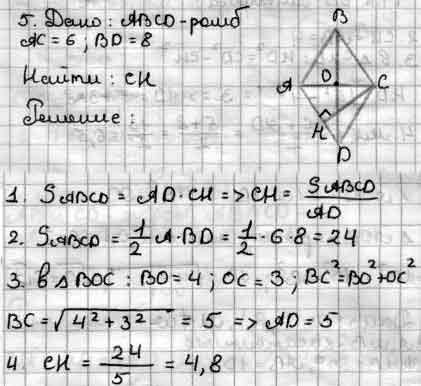 5. Дано: ABCD-ромб
AC = 6 ; BD = 8
Найти: CH
Решение:
B
A
O
C
H
D
1. SABCD = AD · CH => CH = SABCD / AD
2. SABCD = 1/2 A·BD = 1/2 · 6 · 8 = 24
3. в Δ BOC : BO = 4 ; OC = 3 ; BC² = BO² + OC²
BC = √(4² + 3²) = 5 => AD = 5
4. CH = 24/5 = 4,8